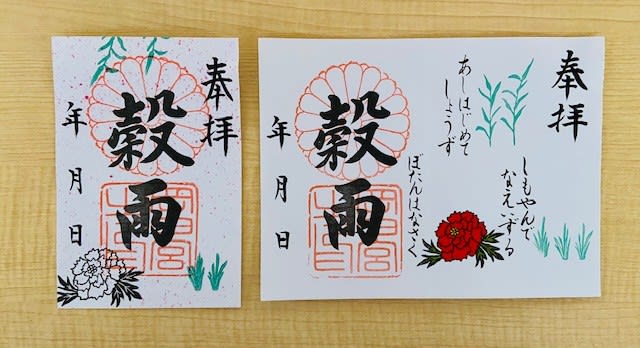 奉拝
穀雨
年月日
奉拝
あしはじめて
しょうず
しもやんで
なえいずる
ぼたんはなさく
穀雨
年月日